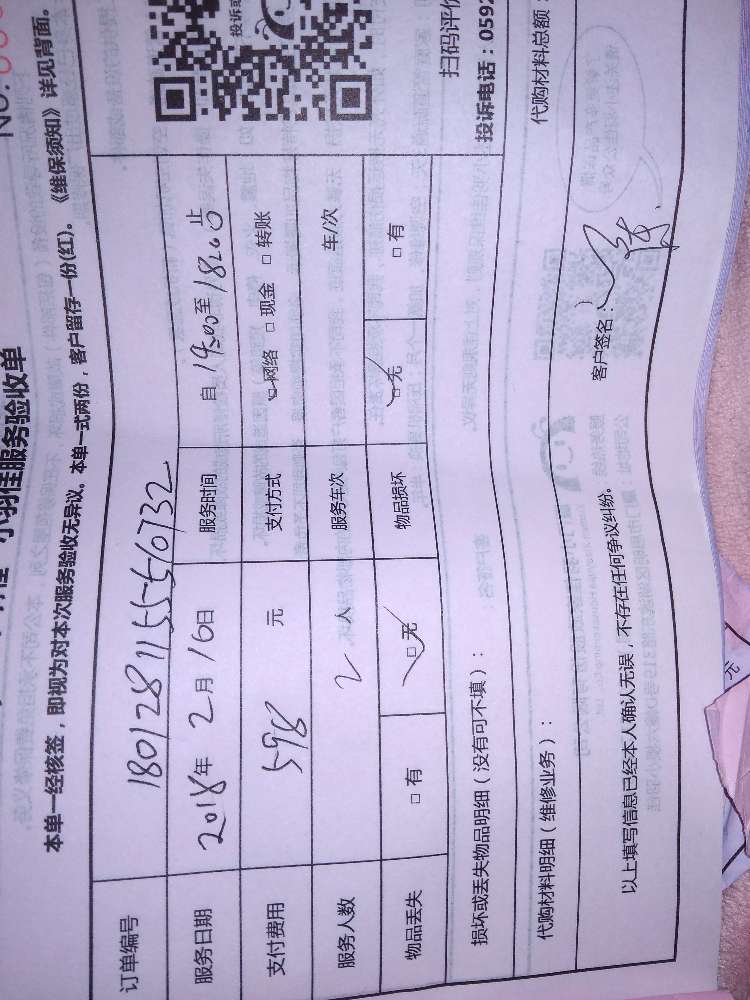 小羽佳服务验收单
NO.
本单一经核签，即视为对本次服务验收无异议。本单一式两份，客户留存一份(红)。《维保须知》详见背面。
订单编号 1801281155540732
服务日期 2018年 2月 16日 服务时间 自 14:00至 18:00 止
支付费用 598 元 支付方式 □网络 □现金 □转账
服务人数 2 人 服务车次 车/次
物品丢失 □有 □无 物品损坏 □无 □有
扫码评价
投诉电话：0592
损坏或丢失物品明细（没有可不填）：
代购材料明细（维修业务）： 代购材料总额：
以上填写信息已经本人确认无误，不存在任何争议纠纷。 客户签名：